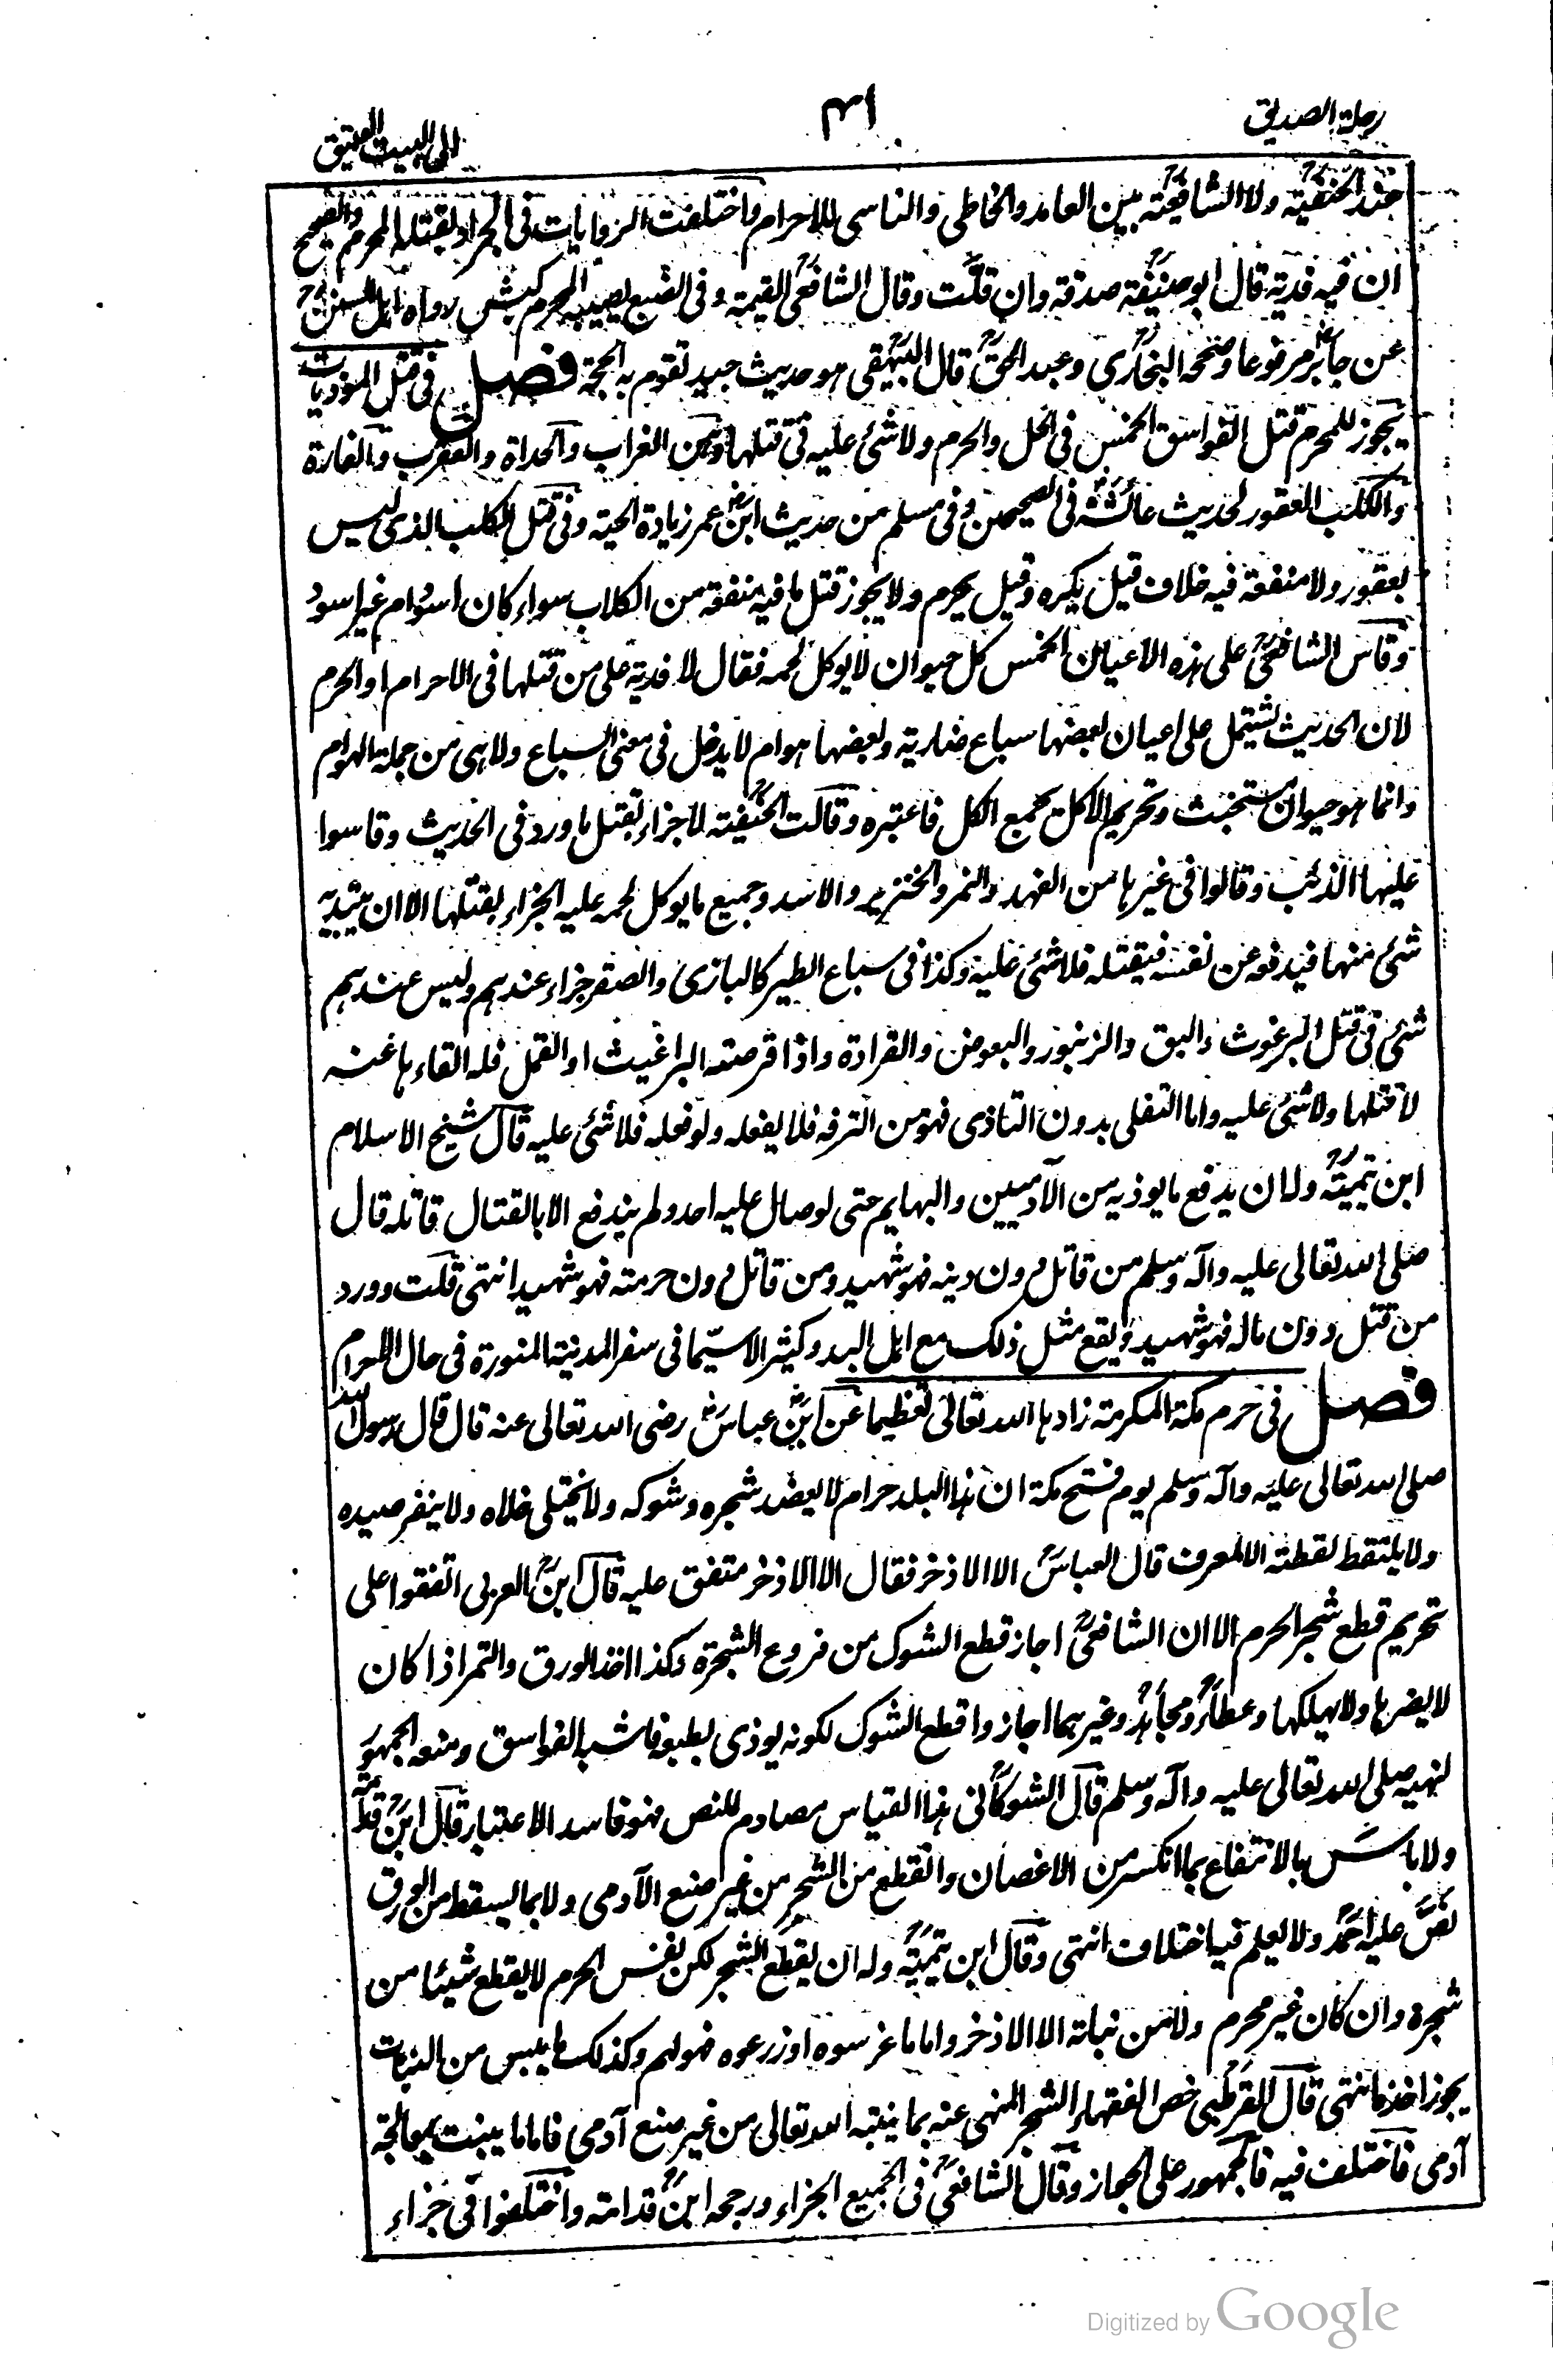 رحلة الصديق
٣١
الى البيت العتيق
عند الحنفية ولا الشافعية بين العامد والخاطى والناسى للاحرام واختلفت الروايات فى الجراد يقتله المحرم والصحيح
ان فيه فدية قال ابو حنيفة صدقة وان قلت وقال الشافعى القيمة وفى الضبع يصيبه المحرم كبش رواه اهل السنن
عن جابر مرفوعا وصححه البخارى وعبد الحق قال البيهقى هو حديث جيد تقوم به الحجة فصل فى قتل الموذيات
يجوز للمحرم قتل الفواسق الخمس فى الحل والحرم ولا شئ عليه فى قتلها وهن الغراب والحداة والعقرب والفارة
والكلب العقور لحديث عائشة فى الصحيحين وفى مسلم من حديث ابن عمر زيادة الحية وفى قتل الكلب الذى ليس
بعقور ولا منفعة فيه خلاف قيل يكره وقيل يحرم ولا يجوز قتل ما فيه منفعة من الكلاب سواء كان اسود ام غير اسود
وقاس الشافعى على هذه الاعيان الخمس كل حيوان لا يوكل لحمه فقال لا فدية على من قتلها فى الاحرام او الحرم
لان الحديث يشتمل على اعيان بعضها سباع ضارية وبعضها هوام لا يدخل فى معنى السباع ولا هى من جملة الهوام
وانما هو حيوان مستخبث وتحريم الاكل يجمع الكل فاعتبره وقالت الحنفية لا جزاء بقتل ما ورد فى الحديث وقاسوا
عليها الذئب وقالوا فى غيرها من الفهد والنمر والخنزير والاسد وجميع ما يوكل لحمه عليه الجزاء بقتلها الا ان يبتديه
شئ منها فيدفعه عن نفسه فيقتله فلا شئ عليه وكذا فى سباع الطير كالبازى والصقر جزاء عندهم وليس عندهم
شئ فى قتل البرغوث والبق والزنبور والبعوض والقرادة واذا قرصته البراغيث او القمل فله القاءها عنه
لا قتلها ولا شئ عليه واما التفلى بدون التاذى فهو من الترفه فلا يفعله ولو فعله فلا شئ عليه قال شيخ الاسلام
ابن تيمية وله ان يدفع ما يوذيه من الآدميين والبهايم حتى لو صال عليه احد ولم يندفع الا بالقتال قاتله قال
صلى الله تعالى عليه وآله وسلم من قاتل دون دينه فهو شهيد ومن قاتل دون حرمته فهو شهيد انتهى قلت وورد
من قتل دون ماله فهو شهيد ويقع مثل ذلك مع اهل البدو كثيرا لا سيما فى سفر المدينة المنورة فى حال الاحرام
فصل فى حرم مكة المكرمة زادها الله تعالى تعظيما عن ابن عباس رضى الله تعالى عنه قال قال رسول الله
صلى الله تعالى عليه وآله وسلم يوم فتح مكة ان هذا البلد حرام لا يعضد شجره وشوكه ولا يختلى خلاه ولا ينفر صيده
ولا يلتقط لقطته الا لمعرف قال العباس الا الاذخر فقال الا الاذخر متفق عليه قال ابن العربى اتفقوا على
تحريم قطع شجر الحرم الا ان الشافعى اجاز قطع الشوك من فروع الشجرة وكذا اخذ الورق والثمر اذا كان
لا يضرها ولا يهلكها وعطاء ومجاهد وغيرهما اجازوا قطع الشوك لكونه يوذى بطبعه فاشبه الفواسق ومنعه الجمهور
لنهيه صلى الله تعالى عليه وآله وسلم قال الشوكانى هذا القياس مصادم للنص فهو فاسد الاعتبار قال ابن قدامة
ولا باس بالانتفاع بما انكسر من الاغصان وانقطع من الشجر من غير صنع الآدمى ولا بما يسقط من الورق
نص عليه احمد ولا يعلم فيه اختلاف انتهى وقال ابن تيمية وله ان يقطع الشجر لكن نفس الحرم لا يقطع شيئا من
شجرة وان كان غير محرم ولا من نباته الا الاذخر واما ما غرسوه او زرعوه فهو لهم وكذلك ما يبس من النبات
يجوز اخذه انتهى قال القرطبى خص الفقهاء الشجر المنهى عنه بما ينبته الله تعالى من غير صنع آدمى فاما ما ينبت بمعالجة
آدمى فاختلف فيه فالجمهور على الجواز وقال الشافعى فى الجميع الجزاء ورجحه ابن قدامة واختلفوا فى جزاء
Digitized by Google